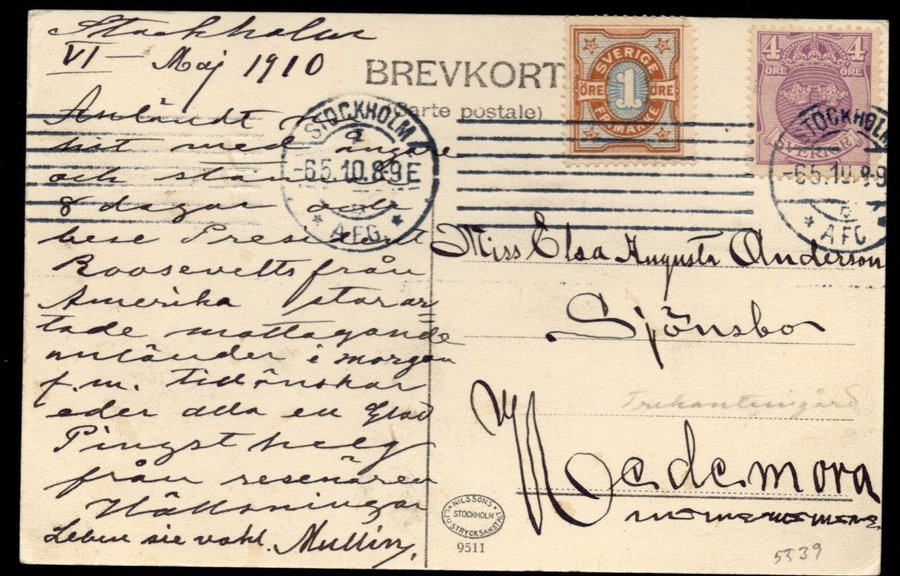 Stockholm
VI - Maj 1910
BREVKORT
(Carte postale)
SVERIGE
1
ÖRE ÖRE
FRIMÄRKE
4 4
ÖRE ÖRE
SVERIGE
STOCKHOLM
-6.5.10.8-9E
* A.F.G. *
STOCKHOLM
-6.5.10.8-9
* AFG
Anländt
hit med
och
8 dagar
bese President
Roosevelts från
Amerika storar
tade mottagande
anländer i morgon
f.m. tillönskar
eder alla en Glad
Pingsthelg
från resenären
Hälsningar
Leben sie vohl. Mullin,
Miss Elsa Augusta Anderson
Sjönsbo
Hedemora
NILSSONS
STOCKHOLM
LJUSTRYCKSANSTALT
9511
5339